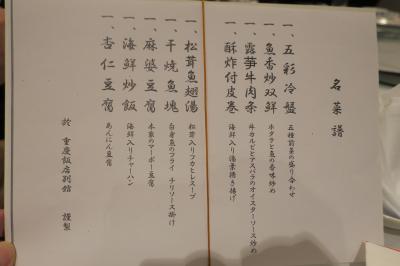 名菜譜
一、五彩冷盤
五種前菜の盛り合わせ
一、魚香炒双鮮
ホタテと魚の香味炒め
一、露荀牛肉条
牛カルビとアスパラのオイスターソース炒め
一、酥炸付皮巻
海鮮入り湯葉捲き揚げ
一、松茸魚翅湯
松茸入りフカヒレスープ
一、干焼魚塊
白身魚のフライ チリソース掛け
一、麻婆豆腐
本家のマーボー豆腐
一、海鮮炒飯
海鮮入りチャーハン
一、杏仁豆腐
あんにん豆腐
於 重慶飯店別館 謹製